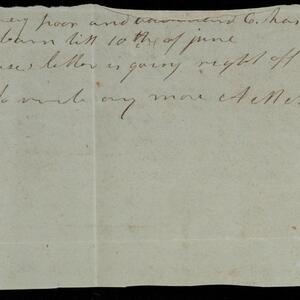 poor and C. has
barn till 10th of june
letter is going right off
to write any more A M